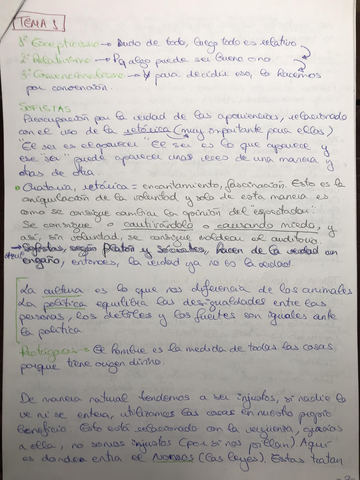 TEMA 1
1º Escepticismo → Dudo de todo, luego todo es relativo
2º Relativismo → Pq algo puede ser bueno o no
3º Convencionalismo → Y para decidir eso, lo hacemos
por convención
SOFISTAS
Preocupación por la verdad de las apariencias, relacionado
con el uso de la retórica (muy importante para ellos)
"El ser es el aparecer" "El ser es lo que aparece y
ese ser" puede aparecer unas veces de una manera y
otras de otra.
Oratoria, retórica = encantamiento, fascinación. Esto es la
anigulación de la voluntad y solo de esta manera es
como se consigue cambiar la opinión del "espectador"
Se consigue o cautivándolo o causando miedo, y
así, sin voluntad, se consigue moldear el auditorio.
→ Sofistas, según Platón y Sócrates, hacen de la verdad un
engaño, entonces, la verdad ya no es la verdad
La cultura es lo que nos diferencia de los animales
La política equilibra las desigualdades entre las
personas, los débiles y los fuertes son iguales ante
la política
Protágoras = El hombre es la medida de todas las cosas
porque tiene origen divino.
De manera natural tendemos a ser injustos, si nadie lo
ve ni se entera, utilizamos las cosas en nuestro propio
beneficio. Esto está relacionado con la vergüenza, gracias
a ella, no somos injustos (por si nos pillan). Aquí
es donde entra el Nomos (las leyes). Estas tratan